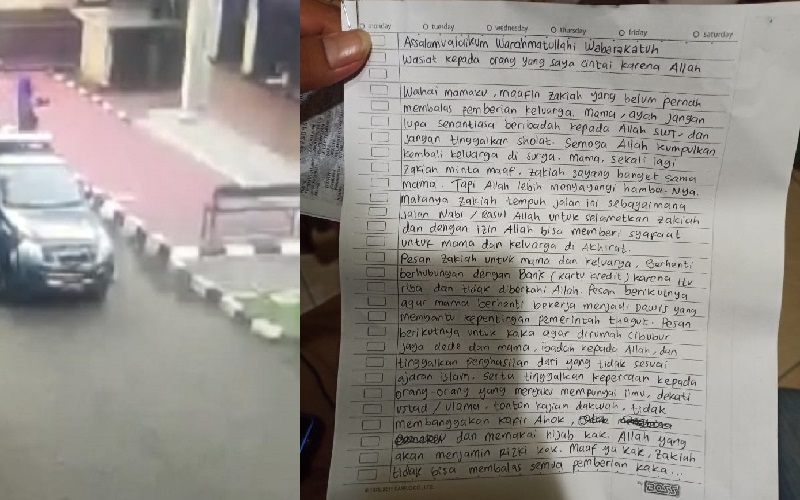 monday tuesday wednesday thursday friday saturday
Assalamualaikum Warahmatullahi Wabarakatuh
Wasiat kepada orang yang saya cintai karena Allah
Wahai mamaku, maafin zakiah yang belum pernah
membalas pemberian keluarga. Mama, ayah jangan
lupa senantiasa beribadah kepada Allah SWT. dan
jangan tinggalkan sholat. Semoga Allah kumpulkan
kembali keluarga di surga. Mama, sekali lagi
zakiah minta maaf. zakiah sayang banget sama
mama. Tapi Allah lebih menyayangi hamba-Nya.
makanya zakiah tempuh jalan ini sebagaimana
jalan Nabi / Rasul Allah untuk selametkan zakiah
dan dengan izin Allah bisa memberi syafaat
untuk mama dan keluarga di Akhirat.
Pesan zakiah untuk mama dan keluarga, Berhenti
berhubungan dengan Bank (kartu kredit) karena itu
riba dan tidak diberkahi Allah. Pesan berikutnya
agar mama berhenti bekerja menjadi Dawis yang
membantu kepentingan pemerintah thogut. Pesan
berikutnya untuk kaka agar dirumah cibubur
jaga dede dan mama, ibadah kepada Allah, dan
tinggalkan penghasilan dari yang tidak sesuai
ajaran islam. serta tinggalkan kepercaan kepada
orang-orang yang mengaku mempunyai ilmu, dekati
ustad / ulama. tonton kajian dakwah, tidak
membanggakan kafir Ahok,
dan memakai hijab kak. Allah yang
akan menjamin Rizki kak. Maaf ya kak, zakiah
tidak bisa membalas semua pemberian kaka...
BOSS